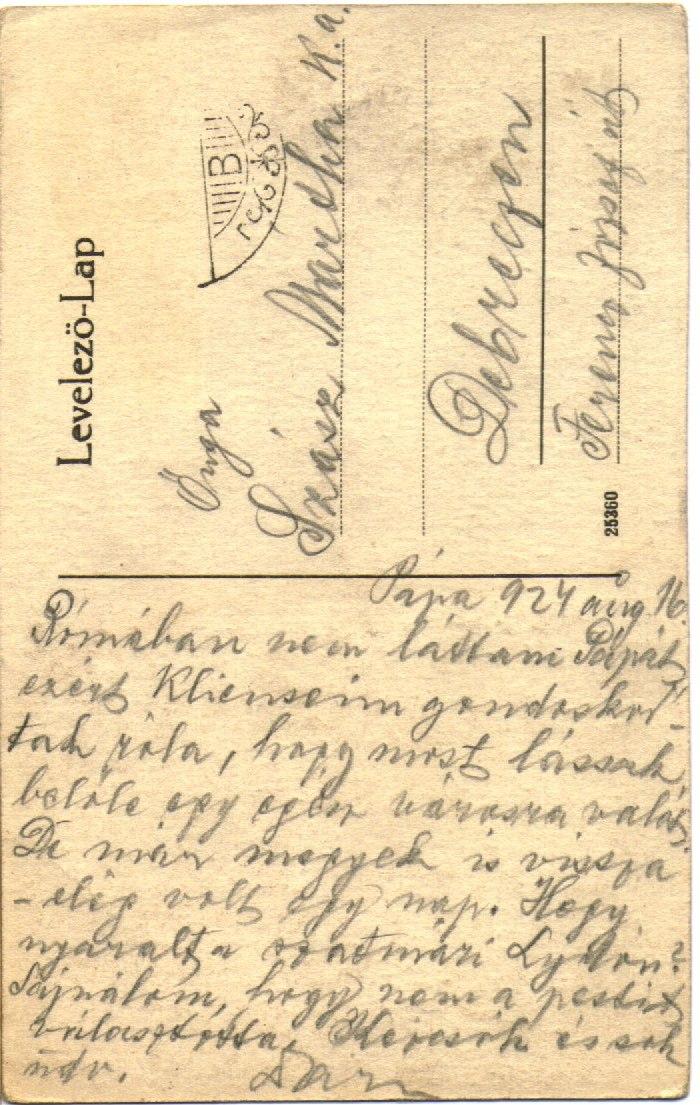 Levelező-Lap
B
Önga
Szász Martha k. a.
Debreczen
Ferencz József út
25360
Pápa 924 aug 16.
Rómában nem láttam Pápát,
ezért Klienseim gondoskod-
tak róla, hogy most lássak
belőle egy egész városra valót.
De már megyek is vissza
– elég volt egy nap. Hogy
nyaralt a szatmári Lydón?
Sajnálom, hogy nem a pestit
választotta. és sok
üdv.